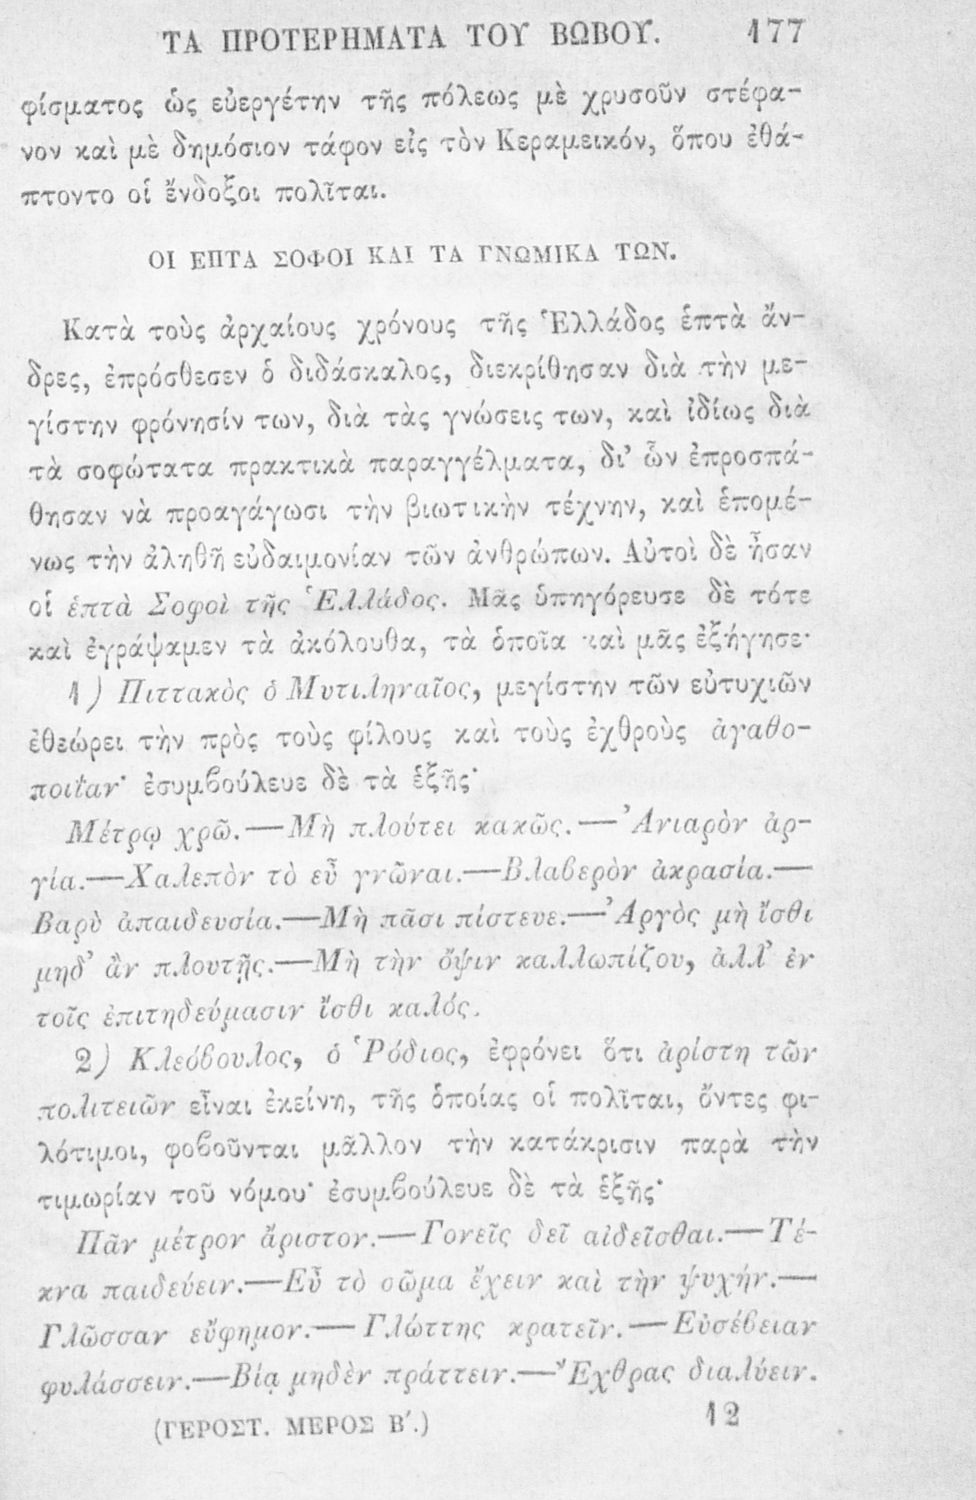 ΤΑ ΠΡΟΤΕΡΗΜΑΤΑ ΤΟΥ ΒΩΒΟΥ. 177
φίσματος ὡς εὐεργέτην τῆς πόλεως μὲ χρυσοῦν στέφα-
νον καὶ μὲ δημόσιον τάφον εἰς τὸν Κεραμεικόν, ὅπου ἐθά-
πτοντο οἱ ἔνδοξοι πολῖται.
ΟΙ ΕΠΤΑ ΣΟΦΟΙ ΚΑΙ ΤΑ ΓΝΩΜΙΚΑ ΤΩΝ.
Κατὰ τοὺς ἀρχαίους χρόνους τῆς Ἑλλάδος ἑπτὰ ἄν-
δρες, ἐπρόσθεσεν ὁ διδάσκαλος, διεκρίθησαν διὰ τὴν με-
γίστην φρόνησίν των, διὰ τὰς γνώσεις των, καὶ ἰδίως διὰ
τὰ σοφώτατα πρακτικὰ παραγγέλματα, δι’ ὧν ἐπροσπά-
θησαν νὰ προαγάγωσι τὴν βιωτικὴν τέχνην, καὶ ἑπομέ-
νως τὴν ἀληθῆ εὐδαιμονίαν τῶν ἀνθρώπων. Αὐτοὶ δὲ ἦσαν
οἱ ἑπτὰ Σοφοὶ τῆς Ἑλλάδος. Μᾶς ὑπηγόρευσε δὲ τότε
καὶ ἐγράψαμεν τὰ ἀκόλουθα, τὰ ὁποῖα καὶ μᾶς ἐξήγησε·
1) Πιττακὸς ὁ Μυτιληναῖος, μεγίστην τῶν εὐτυχιῶν
ἐθεώρει τὴν πρὸς τοὺς φίλους καὶ τοὺς ἐχθροὺς ἀγαθο-
ποιΐαν· ἐσυμβούλευε δὲ τὰ ἑξῆς·
Μέτρῳ χρῶ.—Μὴ πλούτει κακῶς.—Ἀνιαρὸν ἀρ-
γία.—Χαλεπὸν τὸ εὖ γνῶναι.—Βλαβερὸν ἀκρασία.—
Βαρὺ ἀπαιδευσία.—Μὴ πᾶσι πίστευε.—Ἀργὸς μὴ ἴσθι
μηδ’ ἂν πλουτῇς.—Μὴ τὴν ὄψιν καλλωπίζου, ἀλλ’ ἐν
τοῖς ἐπιτηδεύμασιν ἴσθι καλός.
2) Κλεόβουλος, ὁ Ῥόδιος, ἐφρόνει ὅτι ἀρίστη τῶν
πολιτειῶν εἶναι ἐκείνη, τῆς ὁποίας οἱ πολῖται, ὄντες φι-
λότιμοι, φοβοῦνται μᾶλλον τὴν κατάκρισιν παρὰ τὴν
τιμωρίαν τοῦ νόμου· ἐσυμβούλευε δὲ τὰ ἑξῆς·
Πᾶν μέτρον ἄριστον.—Γονεῖς δεῖ αἰδεῖσθαι.—Τέ-
κνα παιδεύειν.—Εὖ τὸ σῶμα ἔχειν καὶ τὴν ψυχήν.—
Γλῶσσαν εὔφημον.—Γλώττης κρατεῖν.—Εὐσέβειαν
φυλάσσειν.—Βίᾳ μηδὲν πράττειν.—Ἔχθρας διαλύειν.
(ΓΕΡΟΣΤ. ΜΕΡΟΣ Β΄.) 12